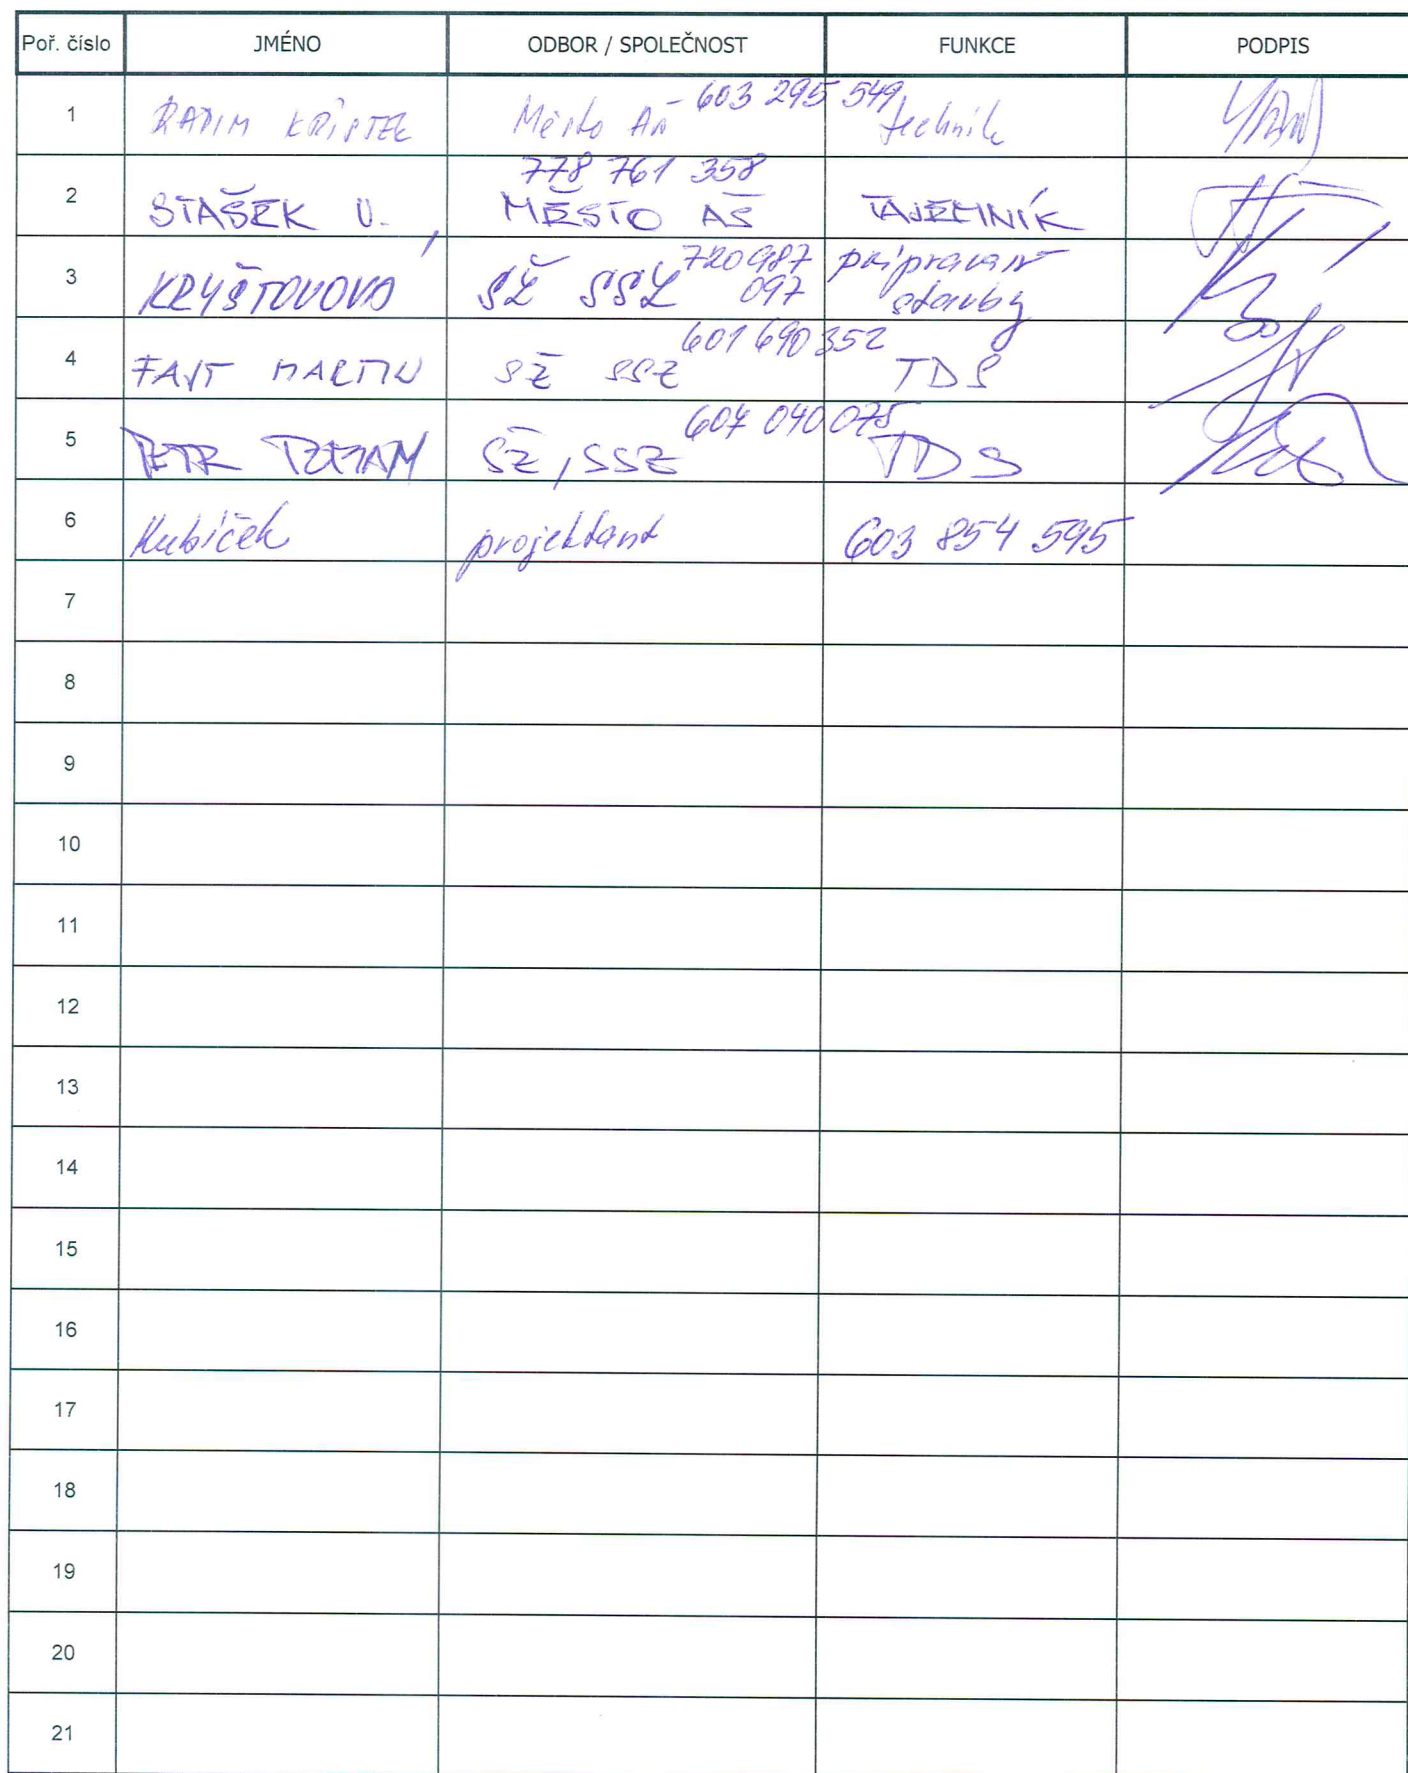 Poř. číslo JMÉNO ODBOR / SPOLEČNOST FUNKCE PODPIS
1 RADIM KŘIŠTEL Město Aš 603 295 549 technik
2 STAŠEK V., 778 761 358 MĚSTO AŠ TAJEMNÍK
3 KRYŠTOVOVÁ SŽ SSZ 720 987 097 přípravář stavby
4 FAJT MARTIN SŽ SSZ 601 690 352 TDS
5 PETR SŽ, SSZ 607 040 075 TDS
6 Kubíček projektant 603 854 595
7
8
9
10
11
12
13
14
15
16
17
18
19
20
21